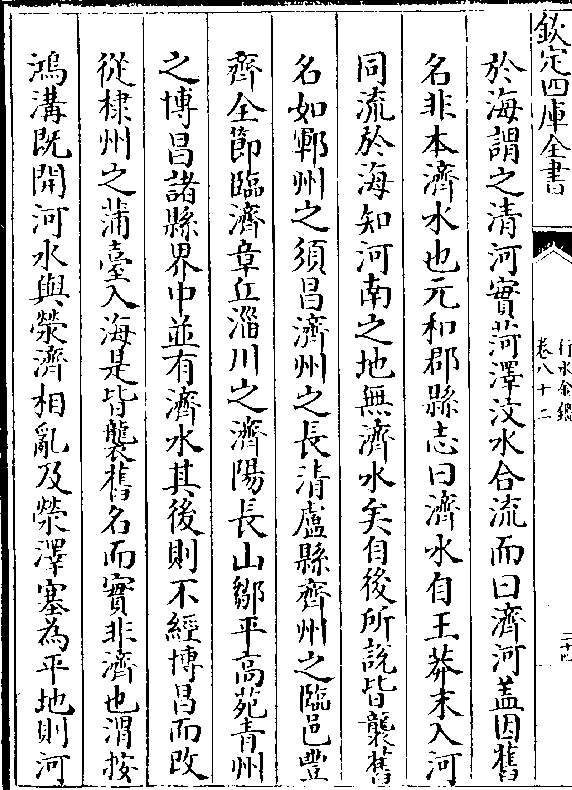 欽定四庫全書
行水金鑑
卷八十二
二十四
於海謂之清河實菏澤汶水合流而曰濟河蓋因舊
名非本濟水也元和郡縣志曰濟水自王莽末入河
同流於海知河南之地無濟水矣自後所説皆襲舊
名如鄆州之須昌濟州之長清盧縣齊州之臨邑豐
齊全節臨濟章丘淄川之濟陽長山鄒平高苑青州
之博昌諸縣界中並有濟水其後則不經博昌而改
從棣州之蒲臺入海是皆襲舊名而實非濟也渭按
鴻溝既開河水與滎濟相亂及滎澤塞為平地則河